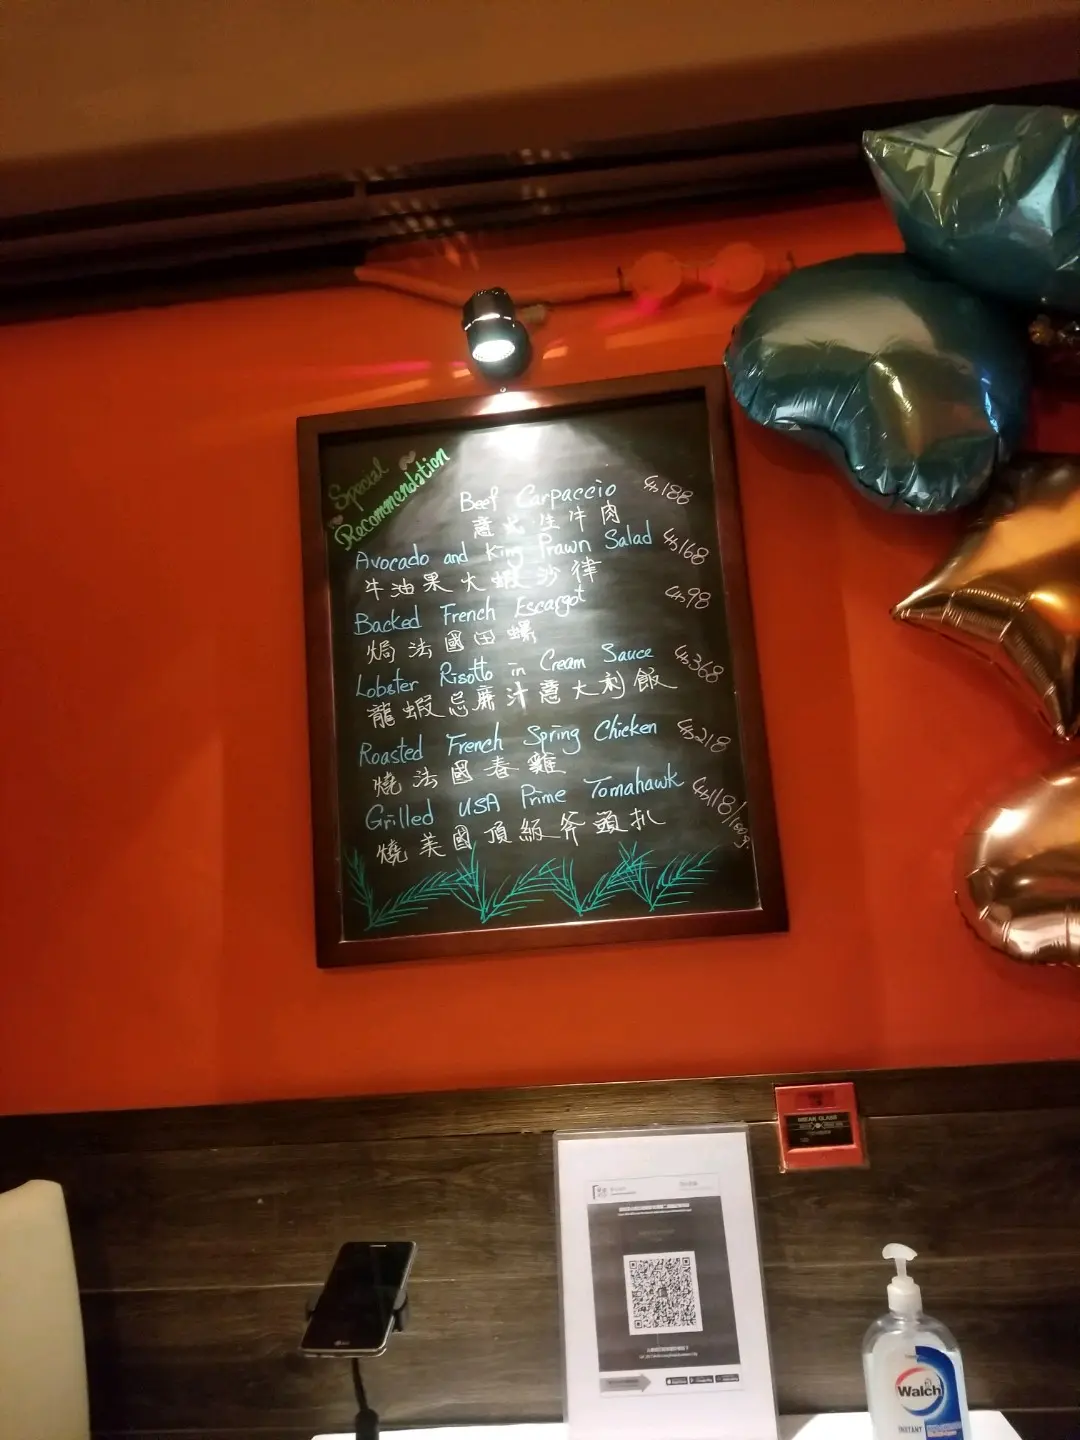 Special
Recommendation
Beef Carpaccio $188
意大利生牛肉
Avocado and King Prawn Salad $168
牛油果大蝦沙律
Backed French Escargot $98
焗法國田螺
Lobster Risotto in Cream Sauce $368
龍蝦忌廉汁意大利飯
Roasted French Spring Chicken $218
燒法國春雞
Grilled USA Prime Tomahawk $118/100g.
燒美國頂級斧頭扒
BREAK GLASS
Walch
INSTANT
LG